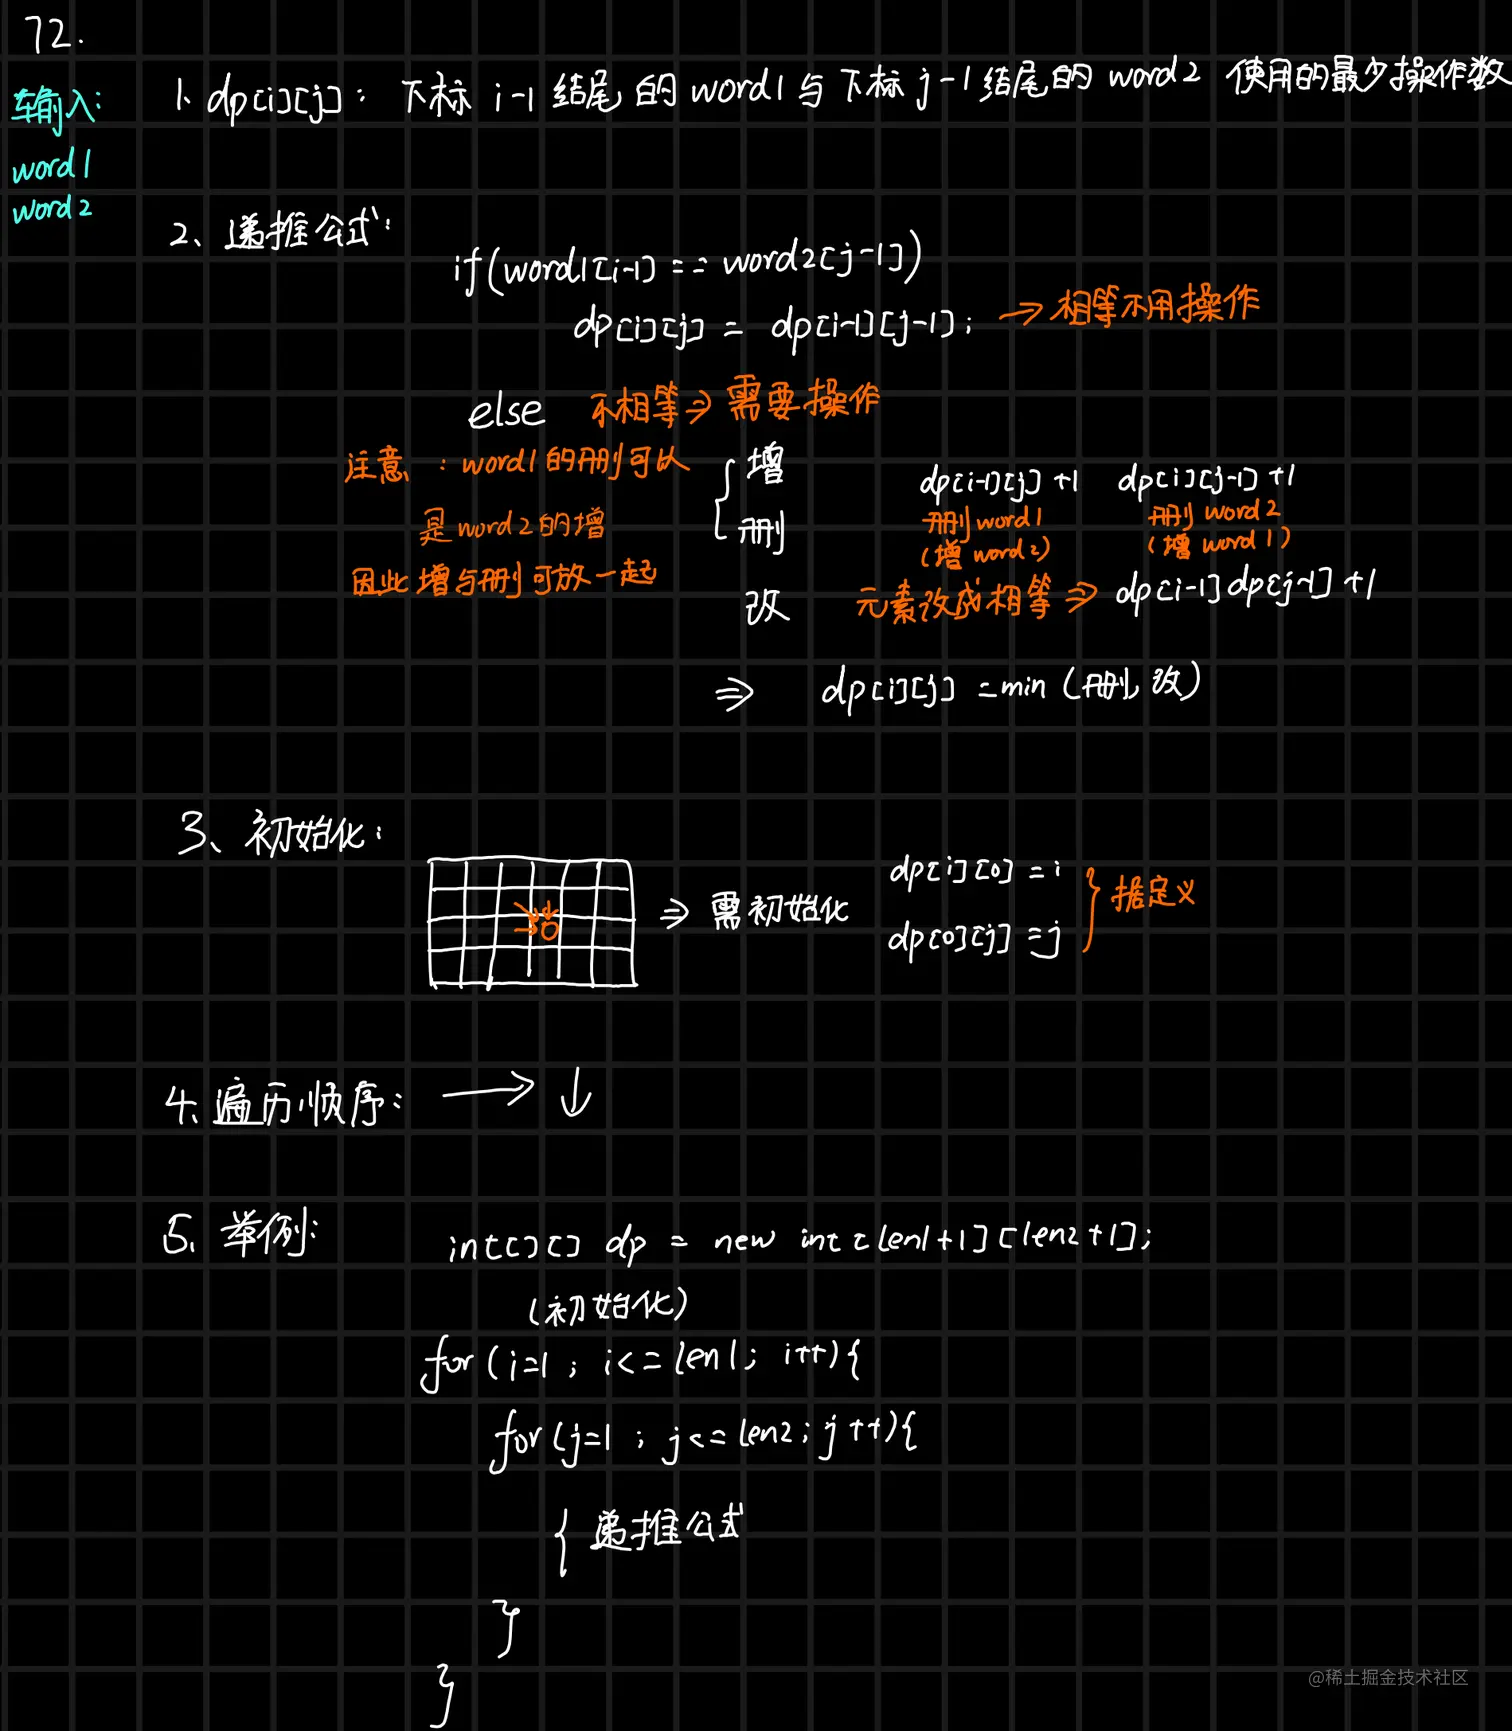 72.
输入:
word1
word2
1、dp[i][j]: 下标 i-1 结尾的 word1 与下标 j-1 结尾的 word2 使用的最少操作数
2、递推公式:
if(word1[i-1] == word2[j-1])
dp[i][j] = dp[i-1][j-1]; → 相等不用操作
else 不相等 ⇒ 需要操作
注意: word1的删可以
是word2的增
因此增与删可放一起
{ 增
删
dp[i-1][j]+1 dp[i][j-1]+1
删word1 删word2
(增word2) (增word1)
改 元素改成相等 ⇒ dp[i-1]dp[j-1]+1
⇒ dp[i][j] = min(删,改)
3、初始化:
⇒ 需初始化
dp[i][0] = i
dp[0][j] = j
} 据定义
4、遍历顺序: → ↓
5、举例:
int[][] dp = new int[len1+1][len2+1];
(初始化)
for(i=1; i<=len1; i++){
for(j=1; j<=len2; j++){
{ 递推公式
}
}
@稀土掘金技术社区